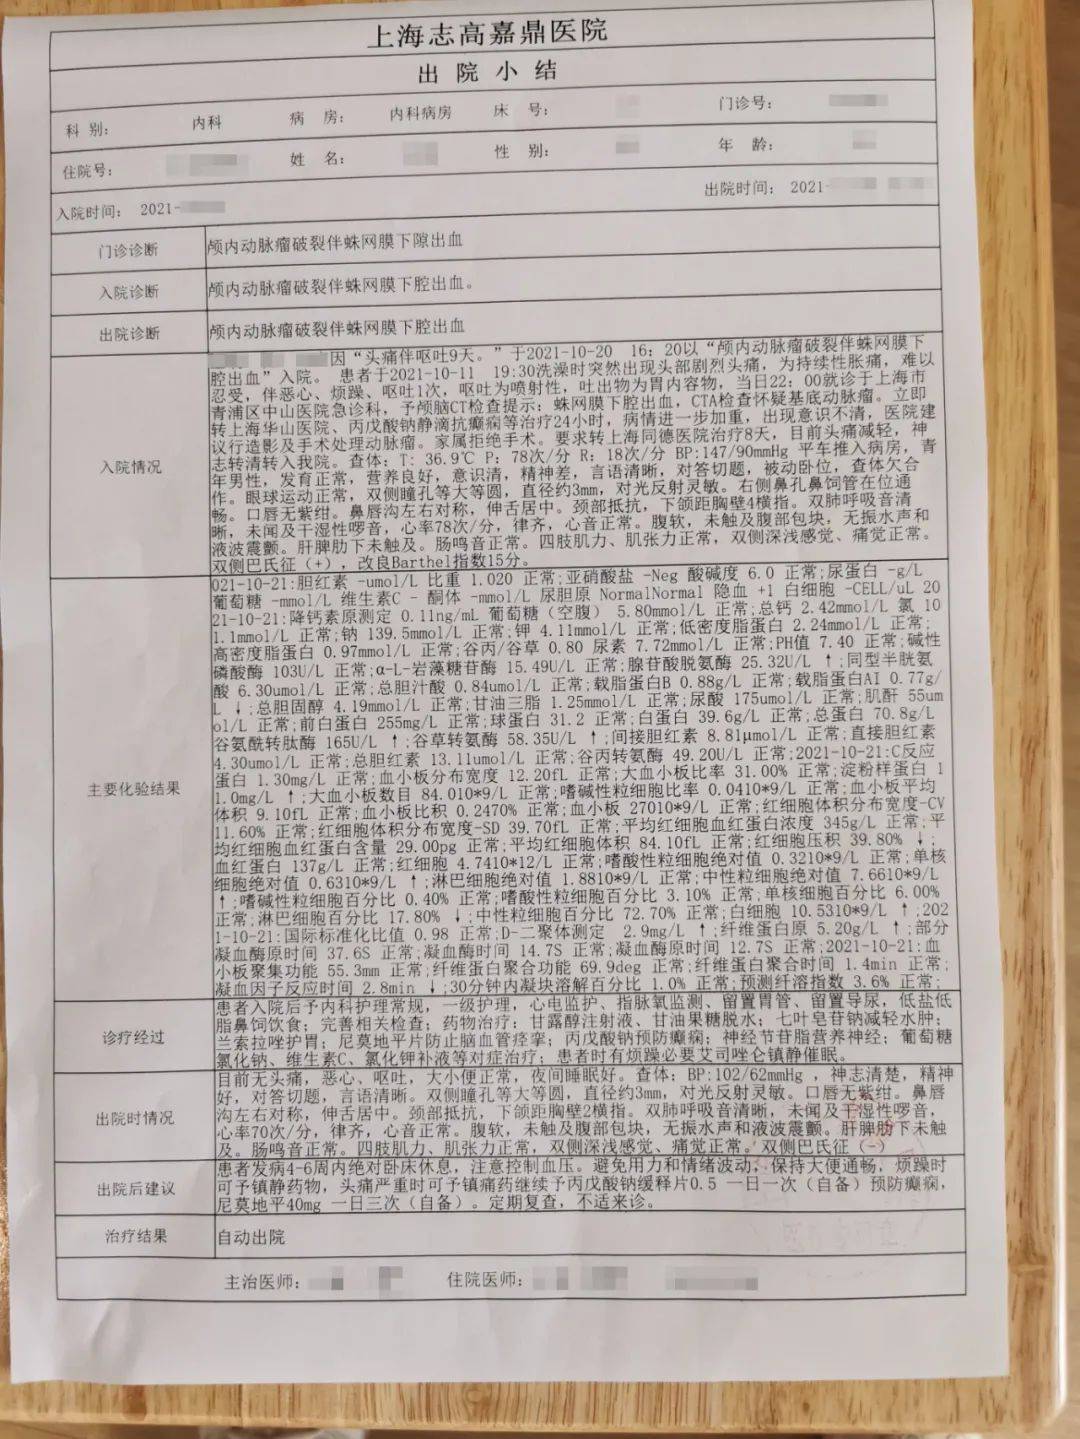 上海志高嘉鼎医院
出 院 小 结
科 别： 内科 病 房： 内科病房 床 号： 门诊号：
住院号： 姓 名： 性 别： 年 龄：
入院时间： 2021- 出院时间： 2021-
门诊诊断 颅内动脉瘤破裂伴蛛网膜下隙出血
入院诊断 颅内动脉瘤破裂伴蛛网膜下腔出血。
出院诊断 颅内动脉瘤破裂伴蛛网膜下腔出血
入院情况
因“头痛伴呕吐9天。”于2021-10-20 16：20以“颅内动脉瘤破裂伴蛛网膜下
腔出血”入院。 患者于2021-10-11 19:30洗澡时突然出现头部剧烈头痛，为持续性胀痛，难以
忍受，伴恶心、烦躁、呕吐1次，呕吐为喷射性，吐出物为胃内容物，当日22：00就诊于上海市
青浦区中山医院急诊科，予颅脑CT检查提示：蛛网膜下腔出血，CTA检查怀疑基底动脉瘤。立即
转上海华山医院、丙戊酸钠静滴抗癫痫等治疗24小时，病情进一步加重，出现意识不清，医院建
议行造影及手术处理动脉瘤。家属拒绝手术。要求转上海同德医院治疗8天，目前头痛减轻，神
志转清转入我院。查体：T：36.9℃ P：78次/分 R：18次/分 BP:147/90mmHg 平车推入病房，青
年男性，发育正常，营养良好，意识清，精神差，言语清晰，对答切题，被动卧位，查体欠合
作。眼球运动正常，双侧瞳孔等大等圆，直径约3mm，对光反射灵敏。右侧鼻孔鼻饲管在位通
畅。口唇无紫绀。鼻唇沟左右对称，伸舌居中。颈部抵抗，下颌距胸壁4横指。双肺呼吸音清
晰，未闻及干湿性啰音，心率78次/分，律齐，心音正常。腹软，未触及腹部包块，无振水声和
液波震颤。肝脾肋下未触及。肠鸣音正常。四肢肌力、肌张力正常，双侧深浅感觉、痛觉正常。
双侧巴氏征（+），改良Barthel指数15分。
主要化验结果
021-10-21:胆红素 -umol/L 比重 1.020 正常;亚硝酸盐 -Neg 酸碱度 6.0 正常;尿蛋白 -g/L
葡萄糖 -mmol/L 维生素C - 酮体 -mmol/L 尿胆原 NormalNormal 隐血 +1 白细胞 -CELL/uL 20
21-10-21:降钙素原测定 0.11ng/mL 葡萄糖（空腹） 5.80mmol/L 正常;总钙 2.42mmol/L 氯 10
1.1mmol/L 正常;钠 139.5mmol/L 正常;钾 4.11mmol/L 正常;低密度脂蛋白 2.24mmol/L 正常;
高密度脂蛋白 0.97mmol/L 正常;谷丙/谷草 0.80 尿素 7.72mmol/L 正常;PH值 7.40 正常;碱性
磷酸酶 103U/L 正常;α-L-岩藻糖苷酶 15.49U/L 正常;腺苷酸脱氨酶 25.32U/L ↑;同型半胱氨
酸 6.30umol/L 正常;总胆汁酸 0.84umol/L 正常;载脂蛋白B 0.88g/L 正常;载脂蛋白AI 0.77g/
L ↓;总胆固醇 4.19mmol/L 正常;甘油三脂 1.25mmol/L 正常;尿酸 175umol/L 正常;肌酐 55um
ol/L 正常;前白蛋白 255mg/L 正常;球蛋白 31.2 正常;白蛋白 39.6g/L 正常;总蛋白 70.8g/L
谷氨酰转肽酶 165U/L ↑;谷草转氨酶 58.35U/L ↑;间接胆红素 8.81μmol/L 正常;直接胆红素
4.30umol/L 正常;总胆红素 13.11umol/L 正常;谷丙转氨酶 49.20U/L 正常;2021-10-21:C反应
蛋白 1.30mg/L 正常;血小板分布宽度 12.20fL 正常;大血小板比率 31.00% 正常;淀粉样蛋白 1
1.0mg/L ↑;大血小板数目 84.010*9/L 正常;嗜碱性粒细胞比率 0.0410*9/L 正常;血小板平均
体积 9.10fL 正常;血小板比积 0.2470% 正常;血小板 27010*9/L 正常;红细胞体积分布宽度-CV
11.60% 正常;红细胞体积分布宽度-SD 39.70fL 正常;平均红细胞血红蛋白浓度 345g/L 正常;平
均红细胞血红蛋白含量 29.00pg 正常;平均红细胞体积 84.10fL 正常;红细胞压积 39.80% ↓;
血红蛋白 137g/L 正常;红细胞 4.7410*12/L 正常;嗜酸性粒细胞绝对值 0.3210*9/L 正常;单核
细胞绝对值 0.6310*9/L ↑;淋巴细胞绝对值 1.8810*9/L 正常;中性粒细胞绝对值 7.6610*9/L
↑;嗜碱性粒细胞百分比 0.40% 正常;嗜酸性粒细胞百分比 3.10% 正常;单核细胞百分比 6.00%
正常;淋巴细胞百分比 17.80% ↓;中性粒细胞百分比 72.70% 正常;白细胞 10.5310*9/L ↑;202
1-10-21:国际标准化比值 0.98 正常;D-二聚体测定 2.9mg/L ↑;纤维蛋白原 5.20g/L ↑;部分
凝血酶原时间 37.6S 正常;凝血酶时间 14.7S 正常;凝血酶原时间 12.7S 正常;2021-10-21:血
小板聚集功能 55.3mm 正常;纤维蛋白聚合功能 69.9deg 正常;纤维蛋白聚合时间 1.4min 正常;
凝血因子反应时间 2.8min ↓;30分钟内凝块溶解百分比 1.0% 正常;预测纤溶指数 3.6% 正常;
诊疗经过
患者入院后予内科护理常规，一级护理，心电监护、指脉氧监测、留置胃管、留置导尿，低盐低
脂鼻饲饮食；完善相关检查；药物治疗：甘露醇注射液、甘油果糖脱水；七叶皂苷钠减轻水肿；
兰索拉唑护胃；尼莫地平片防止脑血管痉挛；丙戊酸钠预防癫痫；神经节苷脂营养神经；葡萄糖
氯化钠、维生素C、氯化钾补液等对症治疗；患者时有烦躁必要艾司唑仑镇静催眠。
出院时情况
目前无头痛，恶心、呕吐，大小便正常，夜间睡眠好。查体：BP:102/62mmHg ，神志清楚，精神
好，对答切题，言语清晰。双侧瞳孔等大等圆，直径约3mm，对光反射灵敏。口唇无紫绀。鼻唇
沟左右对称，伸舌居中。颈部抵抗，下颌距胸壁2横指。双肺呼吸音清晰，未闻及干湿性啰音，
心率70次/分，律齐，心音正常。腹软，未触及腹部包块，无振水声和液波震颤。肝脾肋下未触
及。肠鸣音正常。四肢肌力、肌张力正常，双侧深浅感觉、痛觉正常。双侧巴氏征（-）
出院后建议
患者发病4-6周内绝对卧床休息，注意控制血压。避免用力和情绪波动，保持大便通畅，烦躁时
可予镇静药物，头痛严重时可予镇痛药继续予丙戊酸钠缓释片0.5 一日一次（自备）预防癫痫，
尼莫地平40mg 一日三次（自备）。定期复查，不适来诊。
治疗结果 自动出院
主治医师： 住院医师：